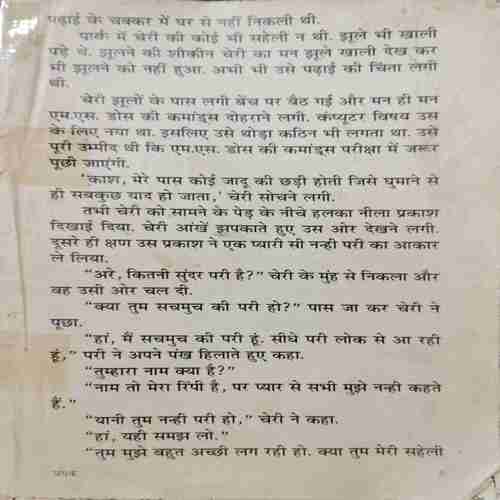 पढ़ाई के चक्कर में घर से नहीं निकली थी.
पार्क में चेरी की कोई भी सहेली न थी. झूले भी खाली
पड़े थे. झूलने की शौकीन चेरी का मन झूले खाली देख कर
भी झूलने को नहीं हुआ. अभी भी उसे पढ़ाई की चिंता लगी
थी.
चेरी झूलों के पास लगी बेंच पर बैठ गई और मन ही मन
एम.एस. डोस की कमांड्स दोहराने लगी. कंप्यूटर विषय उस
के लिए नया था. इसलिए उसे थोड़ा कठिन भी लगता था. उसे
पूरी उम्मीद थी कि एम.एस. डोस की कमांड्स परीक्षा में जरूर
पूछी जाएंगी.
'काश, मेरे पास कोई जादू की छड़ी होती जिसे घुमाने से
ही सबकुछ याद हो जाता,' चेरी सोचने लगी.
तभी चेरी को सामने के पेड़ के नीचे हलका नीला प्रकाश
दिखाई दिया. चेरी आंखें झपकाते हुए उस ओर देखने लगी.
दूसरे ही क्षण उस प्रकाश ने एक प्यारी सी नन्ही परी का आकार
ले लिया.
"अरे, कितनी सुंदर परी है?" चेरी के मुंह से निकला और
वह उसी ओर चल दी.
"क्या तुम सचमुच की परी हो?" पास जा कर चेरी ने
पूछा.
"हां, मैं सचमुच की परी हूं. सीधे परी लोक से आ रही
हूं," परी ने अपने पंख हिलाते हुए कहा.
"तुम्हारा नाम क्या है?"
"नाम तो मेरा रिंपी है, पर प्यार से सभी मुझे नन्ही कहते
हैं."
"यानी तुम नन्ही परी हो," चेरी ने कहा.
"हां, यही समझ लो."
"तुम मुझे बहुत अच्छी लग रही हो. क्या तुम मेरी सहेली
चंपक